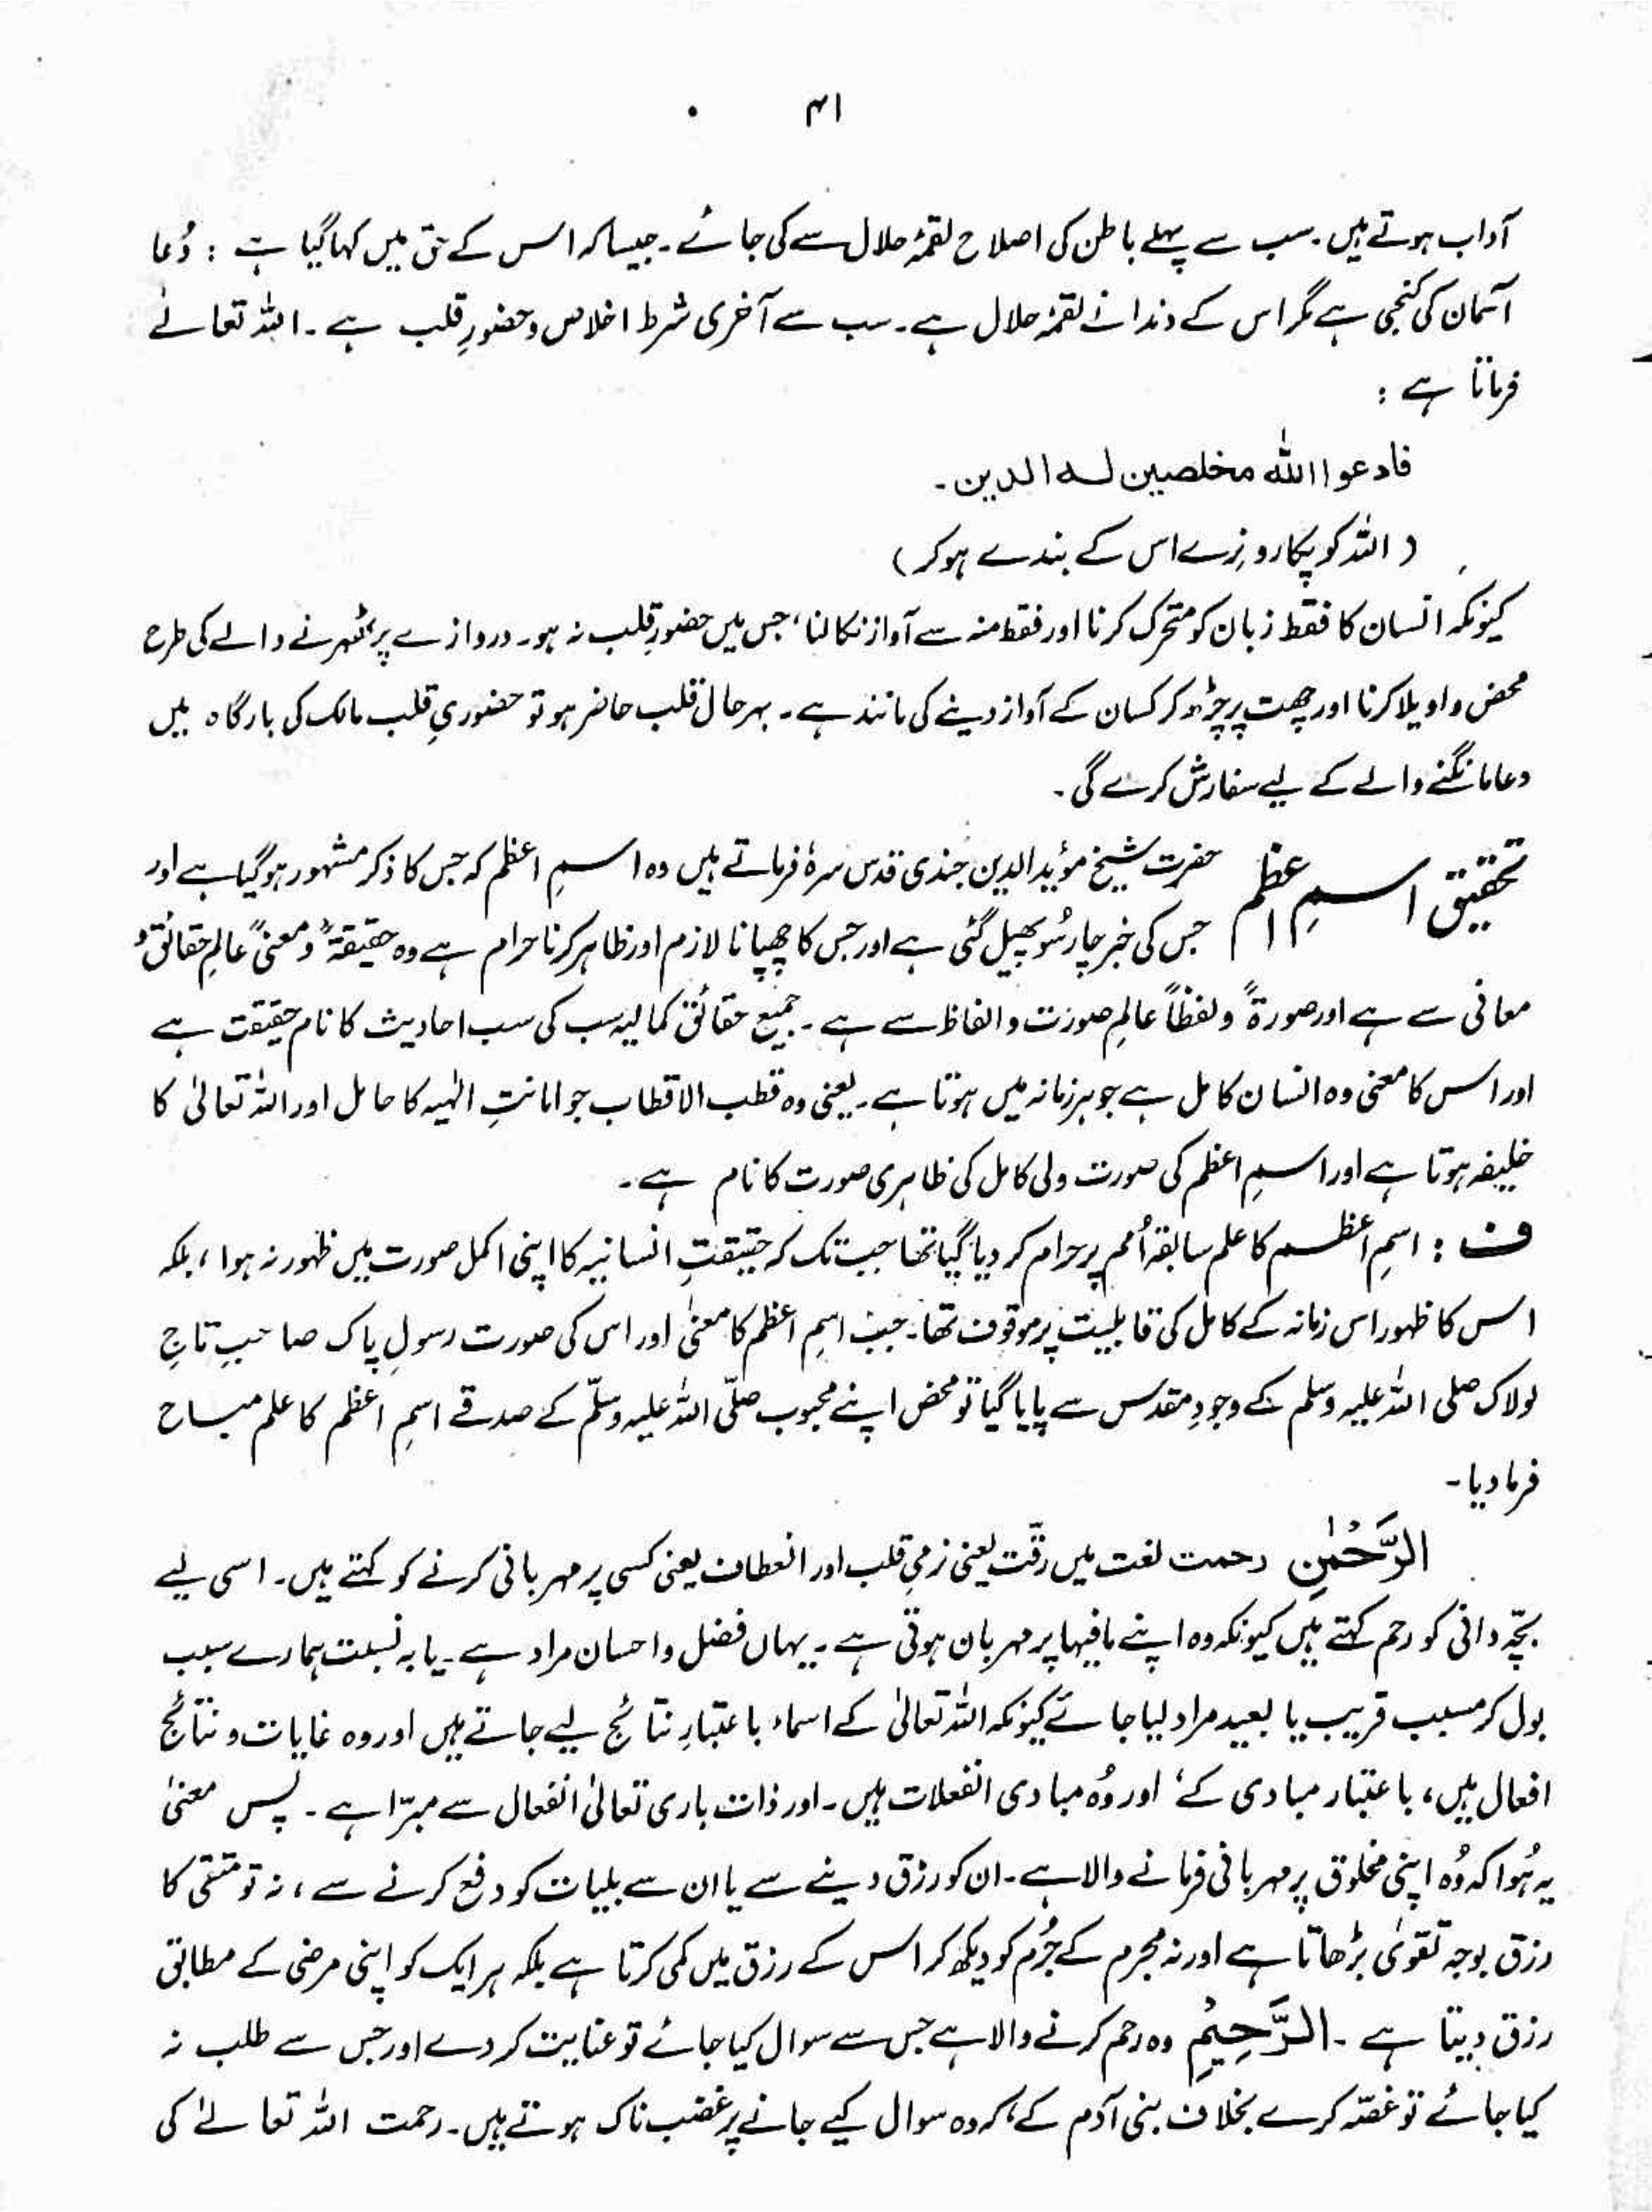 ۴۱
آداب ہوتے ہیں۔ سب سے پہلے باطن کی اصلاح لقمۂ حلال سے کی جائے۔ جیسا کہ اس کے حق میں کہا گیا ہے : دُعا
آسمان کی کنجی ہے مگر اس کے دندانے لقمۂ حلال ہے۔ سب سے آخری شرط اخلاص و حضورِ قلب ہے۔ اللہ تعالےٰ
فرماتا ہے :
فادعوا اللہ مخلصین لہ الدین۔
( اللہ کو پکارو نِرے اس کے بندے ہو کر )
کیونکہ انسان کا فقط زبان کو متحرک کرنا اور فقط منہ سے آواز نکالنا، جس میں حضورِ قلب نہ ہو۔ دروازے پر ٹھہرنے والے کی طرح
محض واویلا کرنا اور چھت پر چڑھ کر کسان کے آواز دینے کی مانند ہے۔ بہرحال قلب حاضر ہو تو حضوریِ قلب مالک کی بارگاہ میں
دعا مانگنے والے کے لیے سفارش کرے گی۔
تحقیق اسمِ اعظم حضرت شیخ مؤید الدین جندی قدس سرہٗ فرماتے ہیں وہ اسمِ اعظم کہ جس کا ذکر مشہور ہو گیا ہے اور
جس کی خبر چار سُو پھیل گئی ہے اور جس کا چھپانا لازم اور ظاہر کرنا حرام ہے وہ حقیقۃً و معنیً عالمِ حقائق و
معانی سے ہے اور صورۃً و لفظاً عالمِ صورت و الفاظ سے ہے۔ جمیع حقائق کمالیہ سب کی سب احادیث کا نام حقیقت ہے
اور اس کا معنی وہ انسان کامل ہے جو ہر زمانہ میں ہوتا ہے۔ یعنی وہ قطب الاقطاب جو امانتِ الٰہیہ کا حامل اور اللہ تعالیٰ کا
خلیفہ ہوتا ہے اور اسمِ اعظم کی صورت ولی کامل کی ظاہری صورت کا نام ہے۔
ف : اسمِ اعظم کا علم سابقہ اُمم پر حرام کر دیا گیا تھا جب تک کہ حقیقتِ انسانیہ کا اپنی اکمل صورت میں ظہور نہ ہوا ، بلکہ
اس کا ظہور اس زمانہ کے کامل کی قابلیت پر موقوف تھا۔ جب اسمِ اعظم کا معنیٰ اور اس کی صورت رسولِ پاک صاحبِ تاجِ
لولاک صلی اللہ علیہ وسلم کے وجودِ مقدس سے پایا گیا تو محض اپنے محبوب صلّی اللہ علیہ وسلّم کے صدقے اسمِ اعظم کا علم مباح
فرما دیا۔
الرَّحْمٰنِ رحمت لغت میں رقّت یعنی نرمیِ قلب اور انعطاف یعنی کسی پر مہربانی کرنے کو کہتے ہیں۔ اسی لیے
بچّہ دانی کو رحم کہتے ہیں کیونکہ وہ اپنے مافیہا پر مہربان ہوتی ہے۔ یہاں فضل و احسان مراد ہے۔ یا بہ نسبت ہمارے سبب
بول کر مسبب قریب یا بعید مراد لیا جائے کیونکہ اللہ تعالیٰ کے اسماء باعتبارِ نتائج لیے جاتے ہیں اور وہ غایات و نتائج
افعال ہیں، باعتبار مبادی کے، اور وُہ مبادی انفعلات ہیں۔ اور ذات باری تعالیٰ انفعال سے مبرّا ہے۔ پس معنیٰ
یہ ہُوا کہ وُہ اپنی مخلوق پر مہربانی فرمانے والا ہے۔ ان کو رزق دینے سے یا ان سے بلیات کو دفع کرنے سے ، نہ تو متقی کا
رزق بوجہ تقویٰ بڑھاتا ہے اور نہ مجرم کے جُرم کو دیکھ کر اس کے رزق میں کمی کرتا ہے بلکہ ہر ایک کو اپنی مرضی کے مطابق
رزق دیتا ہے۔ الرَّحِیْمِ وہ رحم کرنے والا ہے جس سے سوال کیا جائے تو عنایت کر دے اور جس سے طلب نہ
کیا جائے تو غصّہ کرے بخلاف بنی آدم کے، کہ وہ سوال کیے جانے پر غضب ناک ہوتے ہیں۔ رحمت اللہ تعالےٰ کی